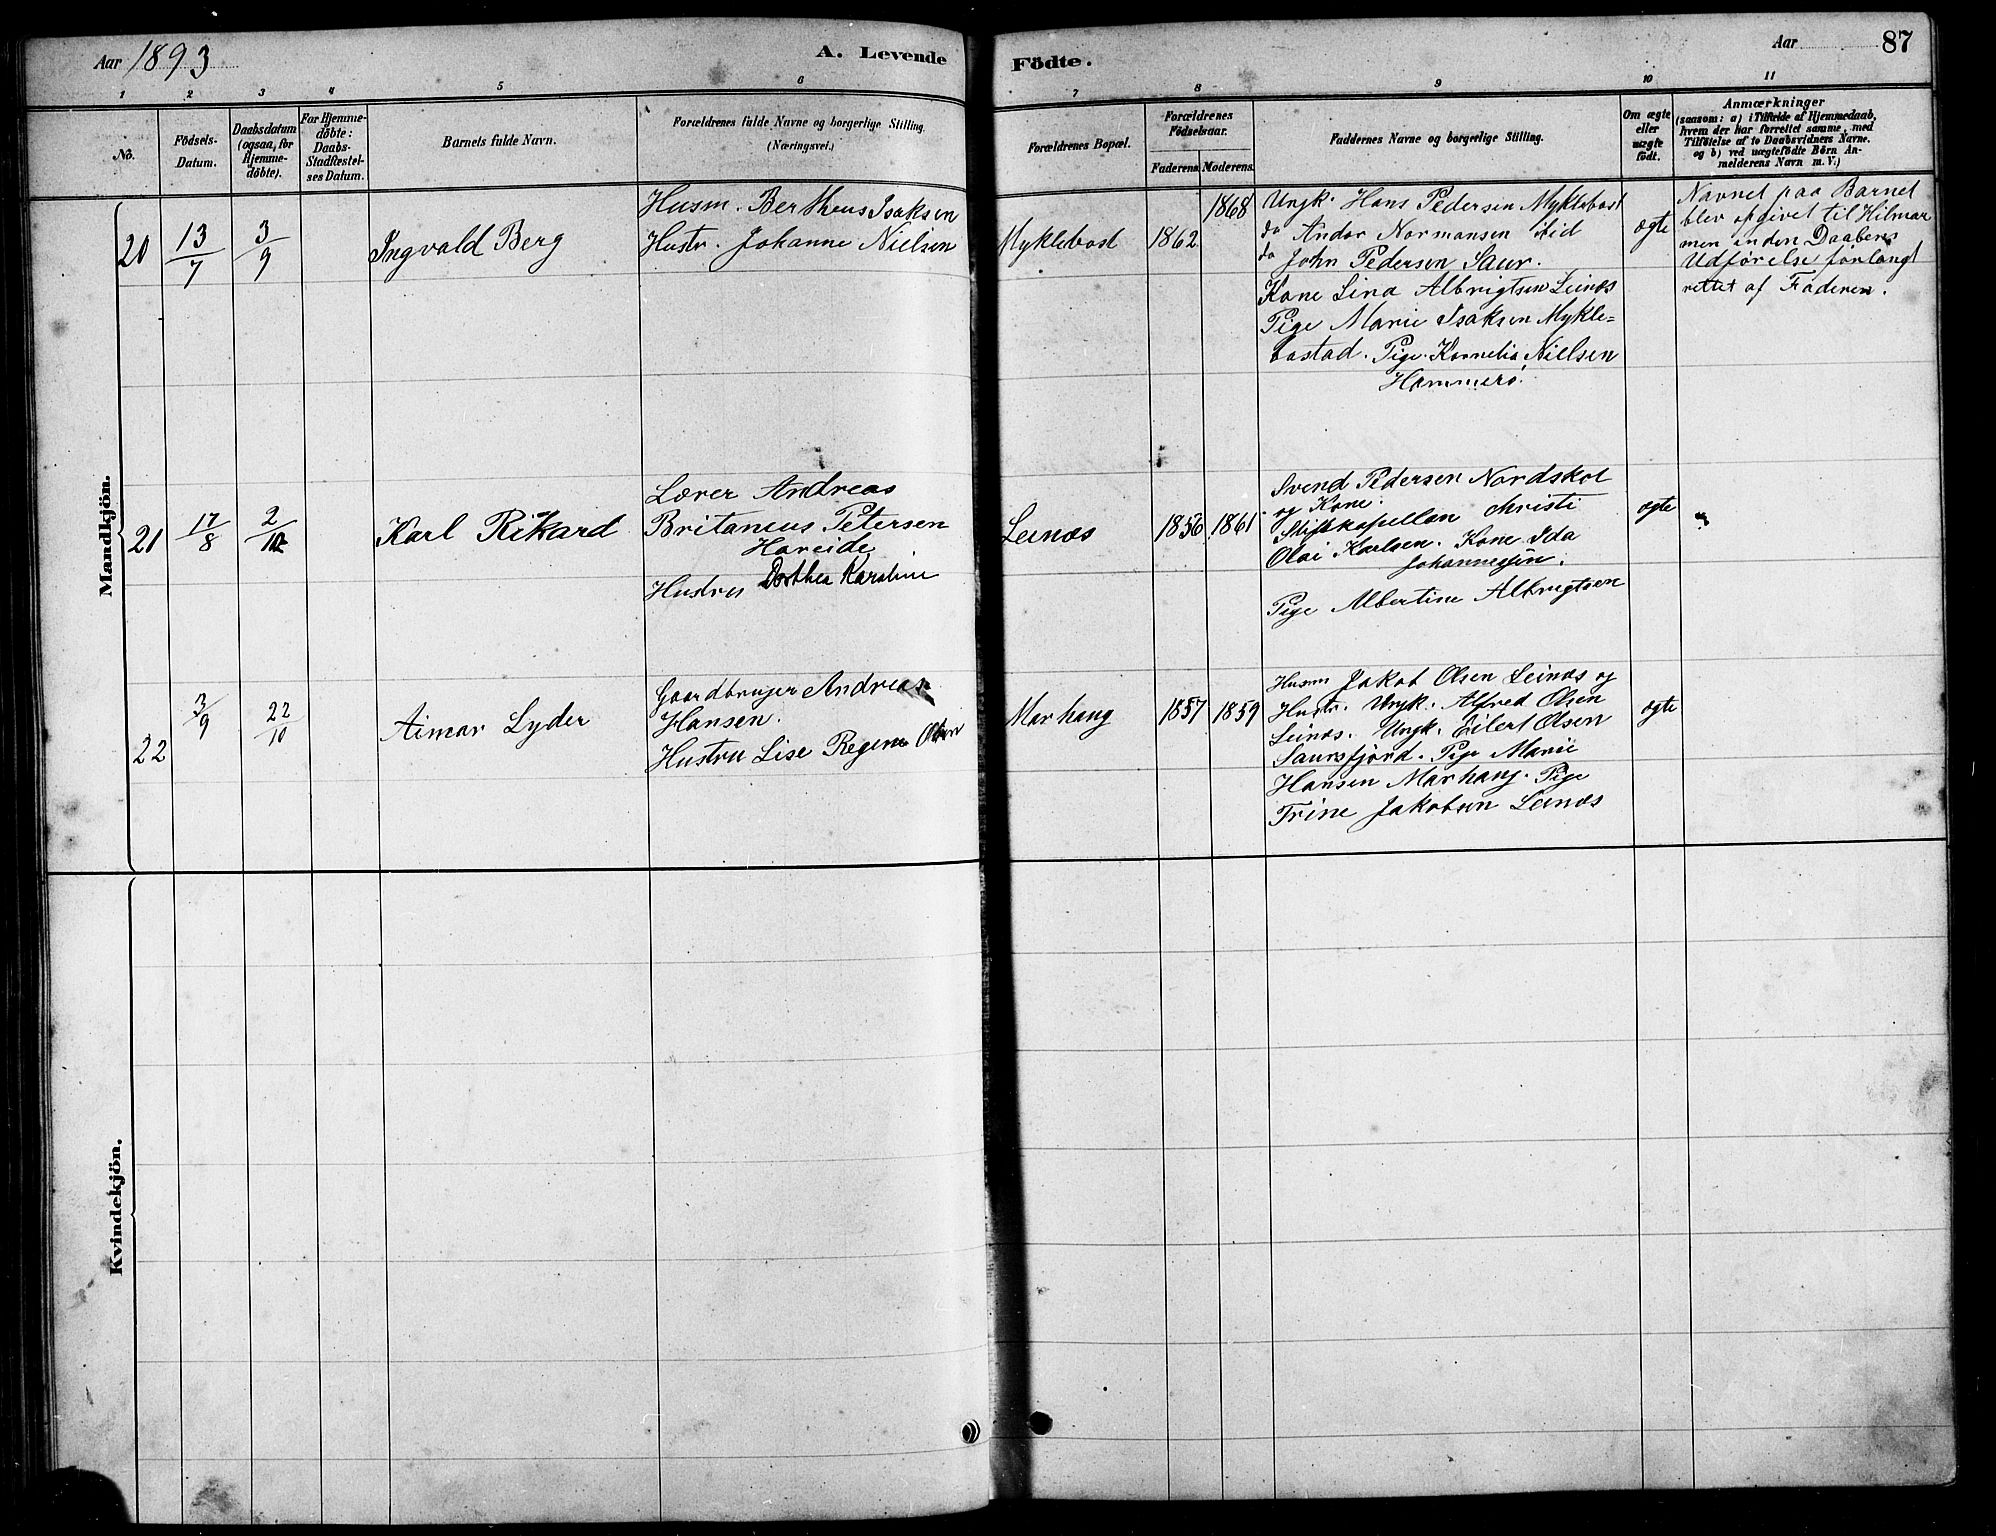 Aar 1893
A. Levende
Födte.
Aar
87
1 2 3 4 5 6 7 8 9 10 11
No.
Födsels-
Datum.
Daabsdatum
(ogsaa, for
Hjemme-
döbte).
For Hjemme-
döbte:
Daabs-
Stadfæstel-
ses Datum.
Barnets fulde Navn.
Forældrenes fulde Navne og borgerlige Stilling.
(Næringsvei.)
Forældrenes Bopæl.
Forældrenes
Födselsaar.
Faderens. Moderens.
Faddernes Navne og borgerlige Stilling.
Om ægte
eller
uægte
födt.
Anmærkninger
(saasom: a) i Tilfælde af Hjemmedaab,
hvem der har forrettet samme, med
Tilföielse af to Daabsvidners Navne.
og b) ved uægtefödte Börn An-
melderens Navn m. V.)
Mandkjön.
20
13/7
3/9
Ingvald Berg
Husm. Bertheus Isaksen
Hustr. Johanne Nielsen
Myklebost
1862
1868
Ungk. Hans Pedersen Myklebost
do Andor Normansen ibid
do John Pedersen Saur.
Kone Lina Albrigtsen Leinæs
Pige Marie Isaksen Mykle=
bostad. Pige Kornelia Nielsen
Hammerø.
ægte
Navnet paa Barnet
blev opgivet til Hilmar
men inden Daabens
Udførelse forlangt
rettet af Faderen.
21
17/8
2/10
Karl Rikard
Lærer Andreas
Britanius Petersen
Hareide
Hustru Dorthea Karoline
Leinæs
1856
1861
Svend Pedersen Nordskot
og Kone.
Stiftskapellan Christi
Olai Karlsen. Kone Ida
Johannesen.
Pige Albertine Albrigtsen
ægte
22
3/9
22/10
Aimar Lyder
Gaardbruger Andreas
Hansen.
Hustru Lise Regine Olsen
Marhaug
1857
1859
Husm Jakob Olsen Leinæs og
Hustr. Ungk. Alfred Olsen
Leinæs. Ungk. Eilert Olsen
Saursfjord. Pige Marie
Hansen Marhaug. Pige
Trine Jakobsen Leinæs
ægte
Kvindekjön.